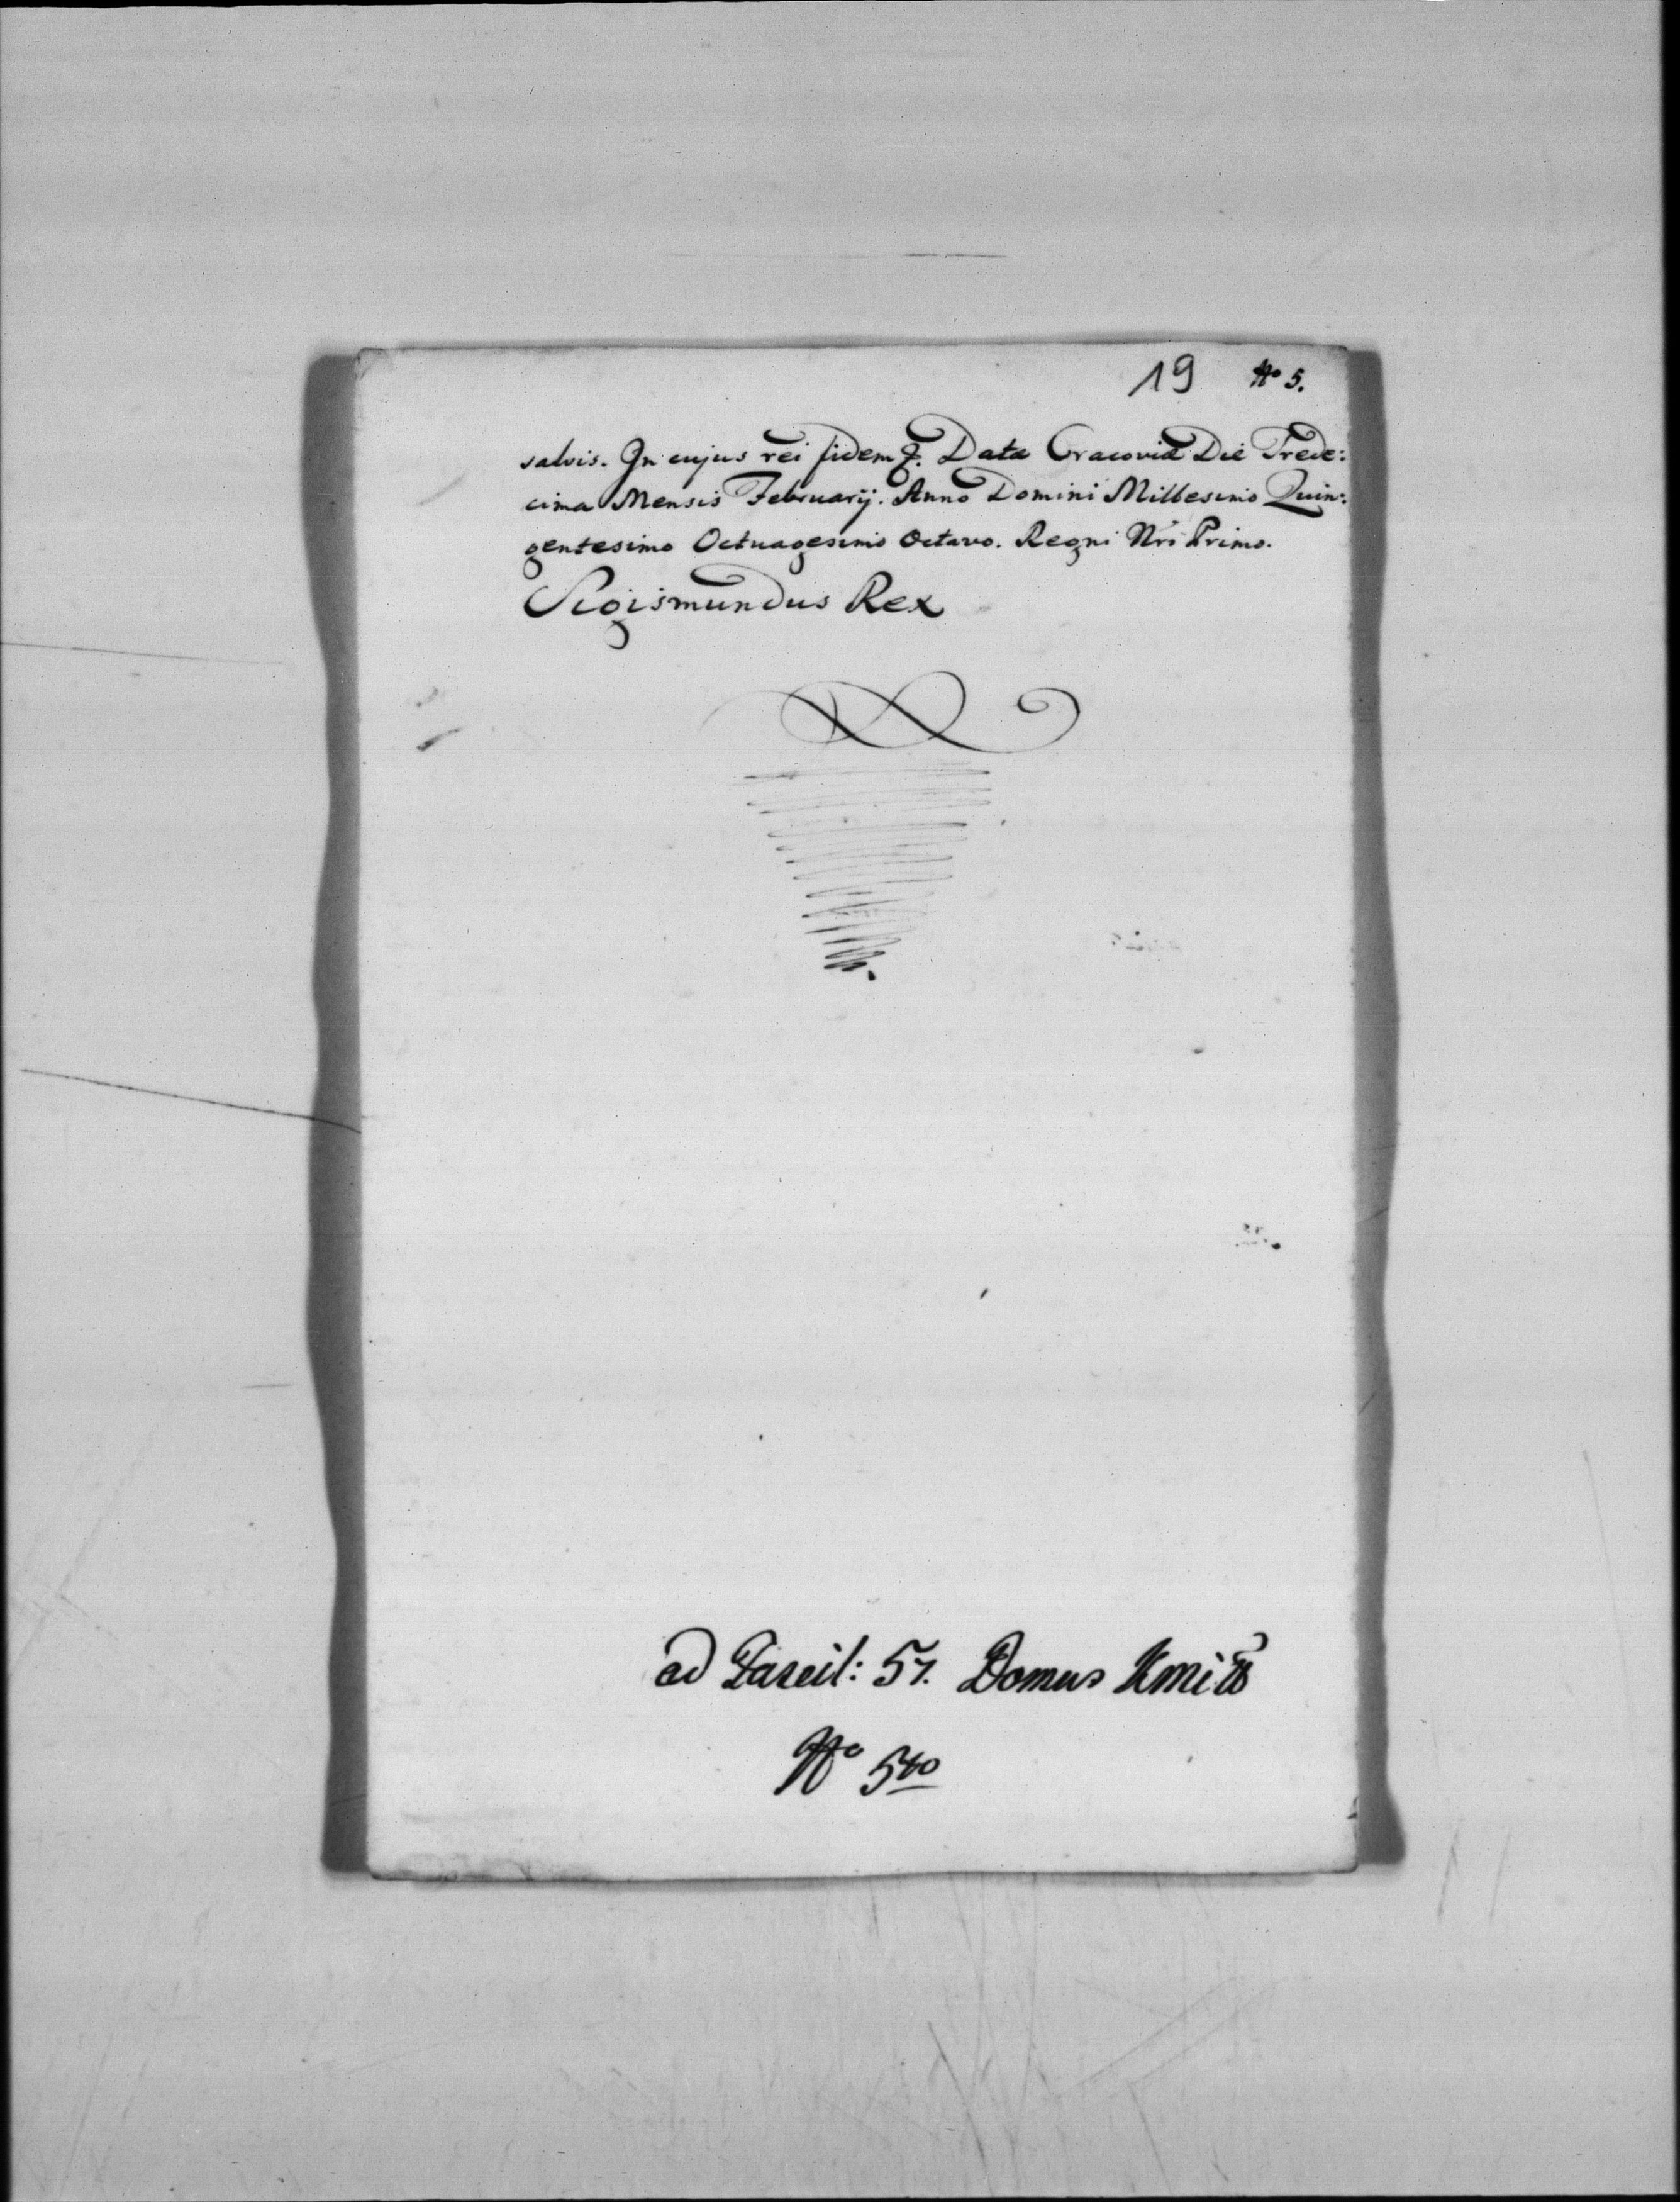 19 No 5.
salvis. In cujus rei fidem &. Data Cracoviæ Die Trede:
cima Mensis Februarij. Anno Domini Millesimo Quin:
gentesimo Octuagesimo Octavo. Regni Nri Primo.
Sigismundus Rex
ad Fascil: 57. Domus Kmitæ
No 5to